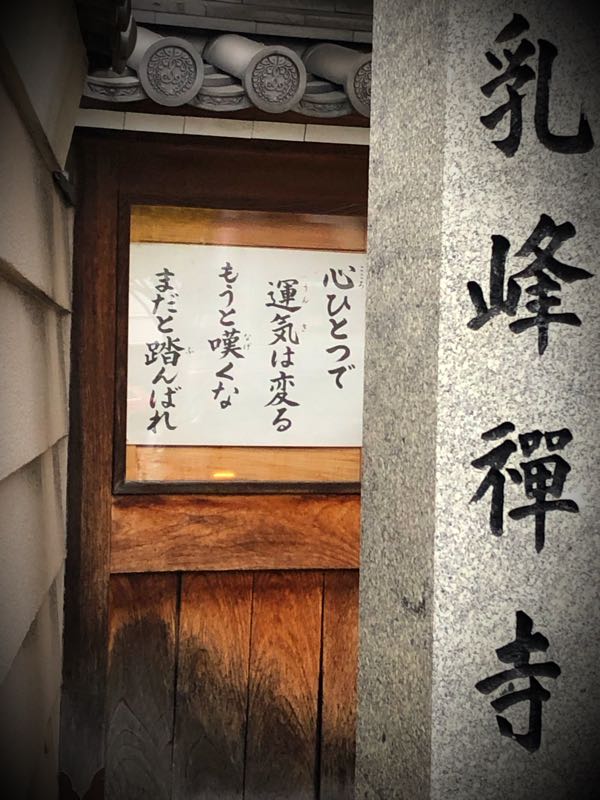 乳峰禪寺
心ひとつで
運気は変る
もうと嘆くな
まだと踏んばれ